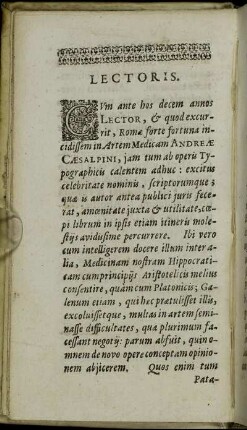 LECTORIS.
CVm ante hos decem annos
LECTOR, & quod excur-
rit, Romæ forte fortuna in-
cidissem in Artem Medicam ANDREÆ
CÆSALPINI, jam tum ab operis Ty-
pographicis calentem adhuc: excitus
celebritate nominis, scriptorumque;
quæ is autor antea publici juris fece-
rat, amœnitate juxta & utilitate, cœ-
pi librum in ipsis etiam itineris mole-
stijs avidissime percurrere. Ibi vero
cum intelligerem docere illum inter a-
lia, Medicinam nostram Hippocrati-
cam cum principijs Aristotelicis melius
consentire, quàm cum Platonicis; Ga-
lenum etiam, qui hæc prætulisset illis,
excoluissetque, multas in artem semi-
nasse difficultates, quæ plurimum fa-
cessant negotij: parum abfuit, quin o-
mnem de novo opere conceptam opinio-
nem abjicerem. Quos enim tum
Pata-